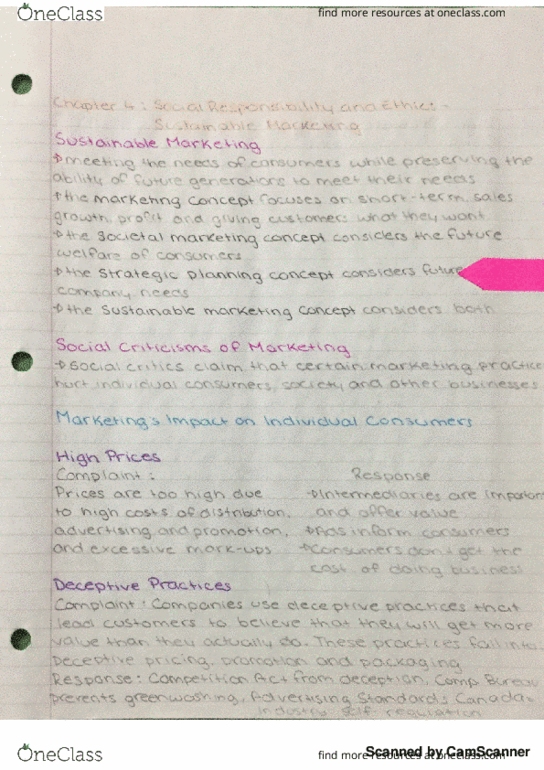 OneClass
find more resources at oneclass.com
Chapter 4: Social Responsibility and Ethics -
Sustainable Marketing
Sustainable Marketing
meeting the needs of consumers while preserving the
ability of future generations to meet their needs
the marketing concept focuses on short-term sales
growth, profit and giving customers what they want
the societal marketing concept considers the future
welfare of consumers
the strategic planning concept considers future
company needs
the sustainable marketing concept considers both
Social Criticisms of Marketing
social critics claim that certain marketing practice
hurt individual consumers, society and other businesses
Marketing's Impact on Individual Consumers
High Prices
Complaint: Response
Prices are too high due Intermediaries are important
to high costs of distribution, and offer value
advertising and promotion, Ads inform consumers
and excessive mark-ups consumers don't get the
cost of doing business
Deceptive Practices
Complaint: Companies use deceptive practices that
lead customers to believe that they will get more
value than they actually do. These practices fall into:
Deceptive pricing, promotion and packaging
Response: Competition Act from deception, Comp Bureau
prevents greenwashing, Advertising Standards Canada-
industry self-regulation
OneClass
find more resources at oneclass.com
Scanned by CamScanner